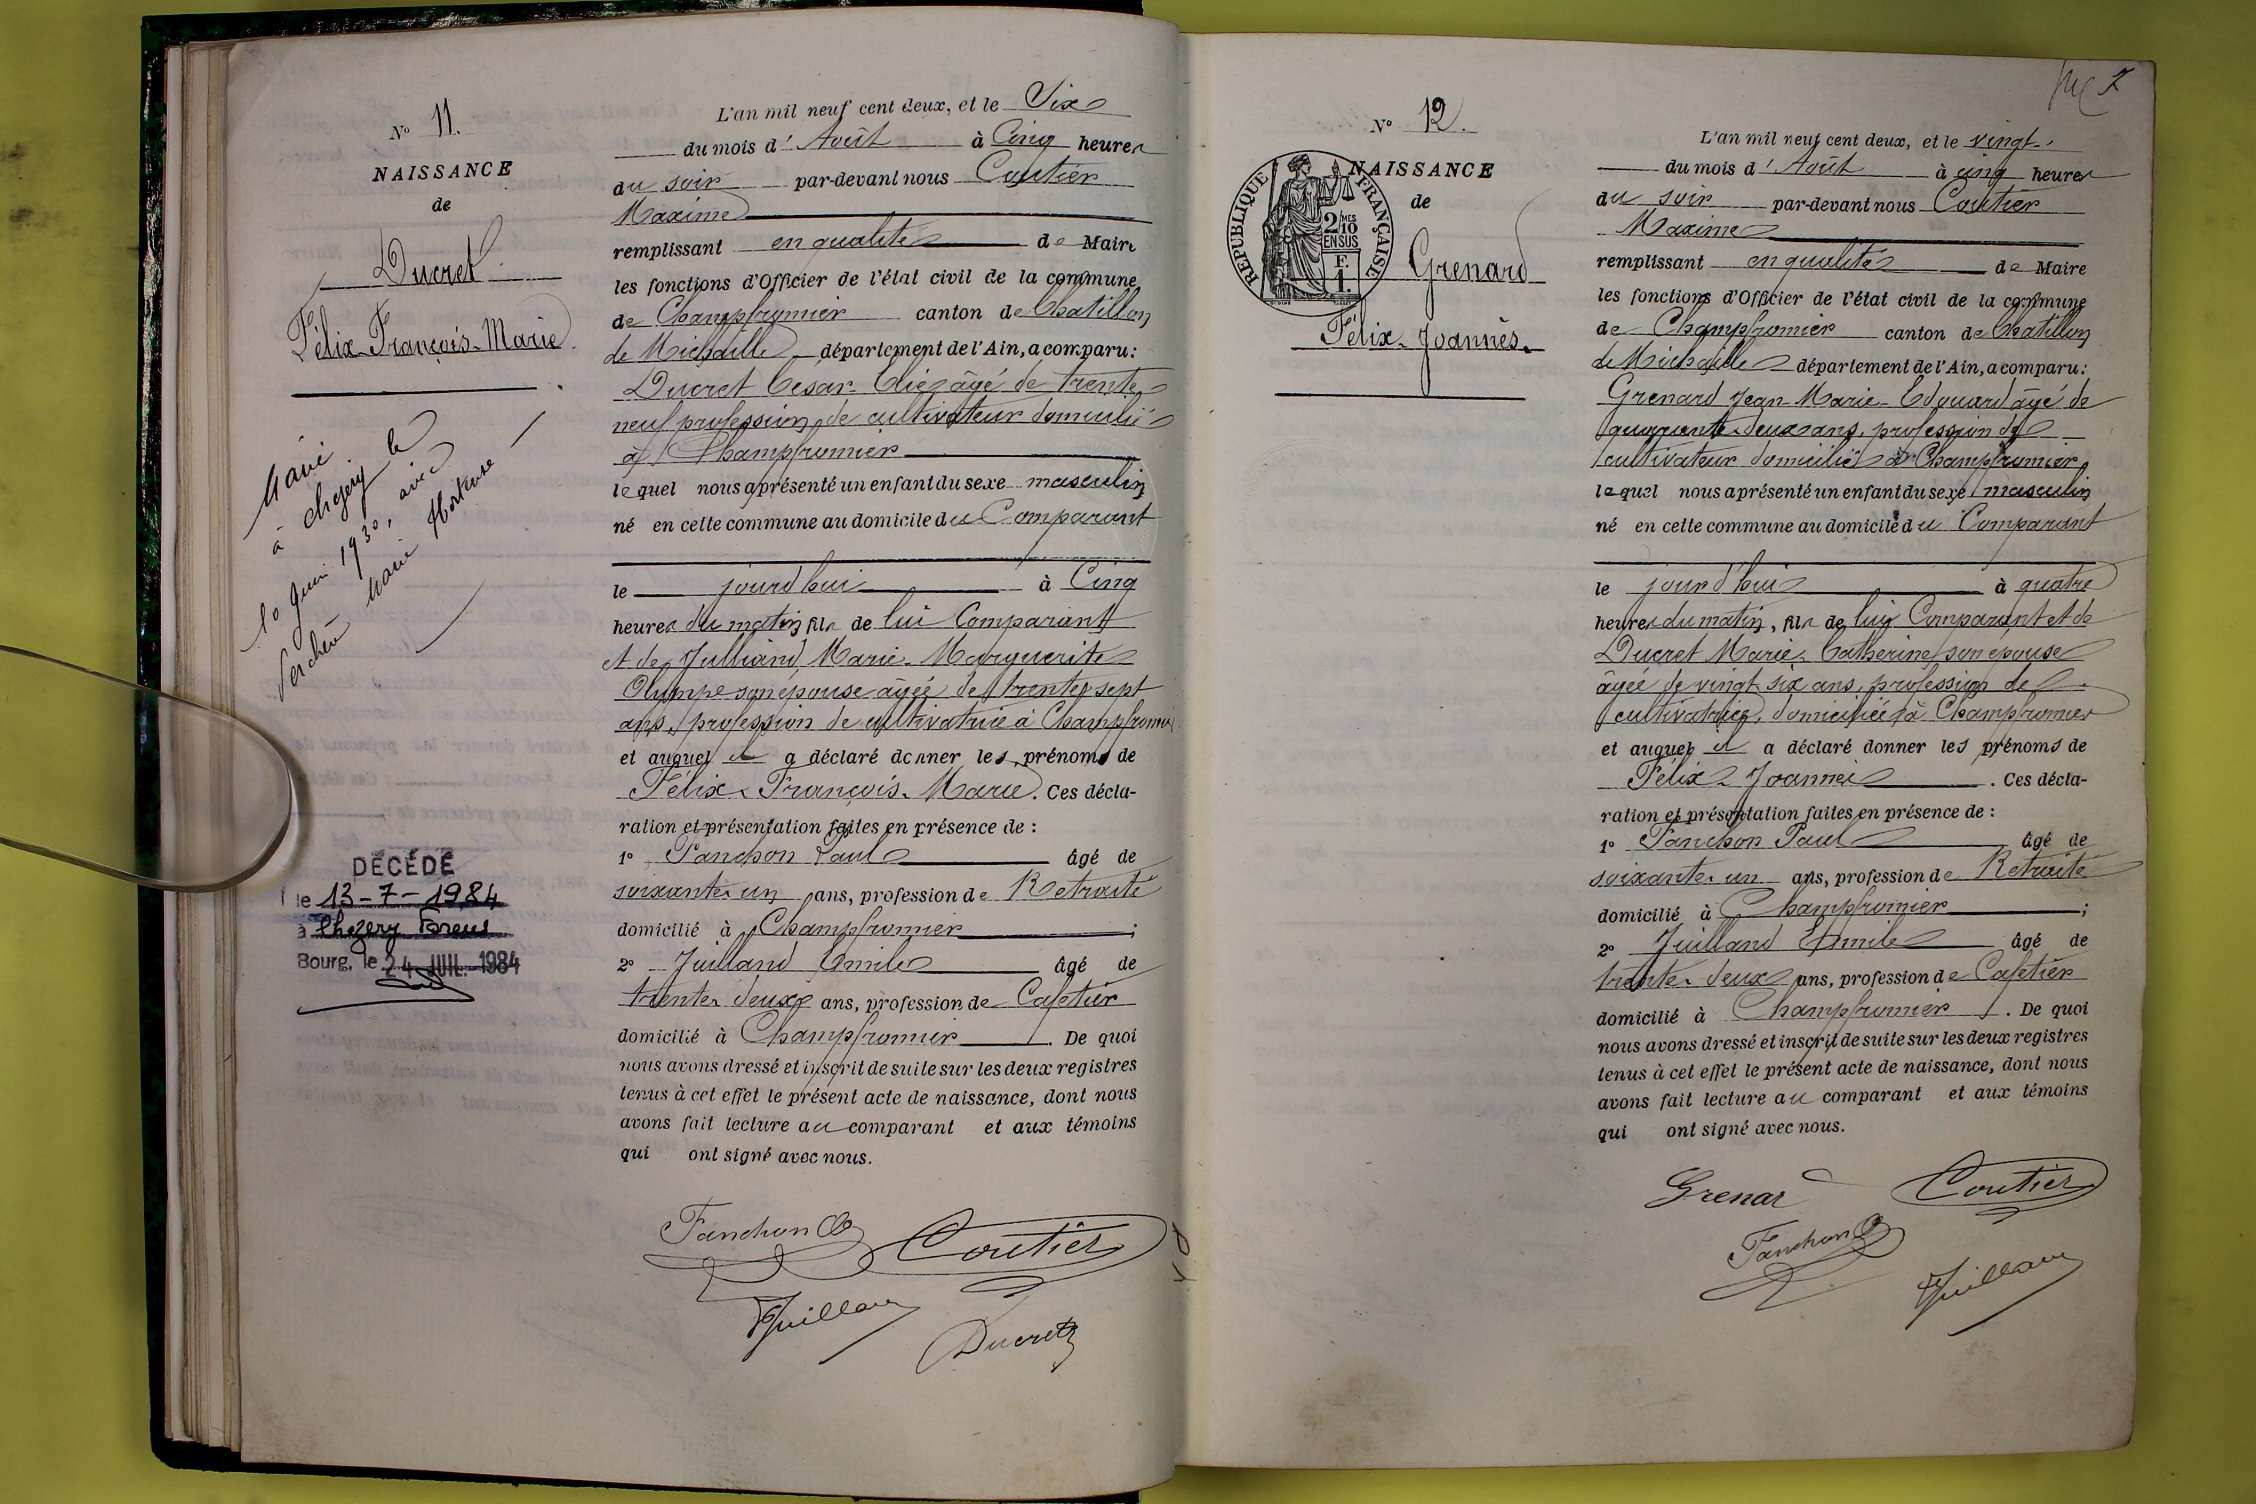 Nº 11.
NAISSANCE
de
Ducret
Félix-François-Marie
Marié
à Chézery le
10 Juin 1930, avec
Marie Hortense
DÉCÉDÉ
le 13-7-1984
à Chézery Forens
Bourg, le 24 JUIL. 1984
L'an mil neuf cent deux, et le Six
du mois d' Août à Cinq heures
du soir par-devant nous Coutier
Maxime
remplissant en qualité de Maire
les fonctions d'Officier de l'état civil de la commune
de Champfromier canton de Chatillon
de Michaille département de l'Ain, a comparu:
Ducret César Elie âgé de trente
neuf profession de cultivateur domicilié
à Champfromier
lequel nous a présenté un enfant du sexe masculin
né en cette commune au domicile du Comparant
le jourd'hui à Cinq
heures du matin, fils de lui Comparant
et de Julliand Marie-Marguerite
Olympe son épouse âgée de trente sept
ans, profession de cultivatrice à Champfromier
et auquel il a déclaré donner les prénoms de
Félix-François-Marie. Ces décla-
ration et présentation faites en présence de :
1º Fanchon Paul âgé de
soixante-un ans, profession de Retraité
domicilié à Champfromier ;
2º Juilland Emile âgé de
trente-deux ans, profession de Cafetier
domicilié à Champfromier. De quoi
nous avons dressé et inscrit de suite sur les deux registres
tenus à cet effet le présent acte de naissance, dont nous
avons fait lecture au comparant et aux témoins
qui ont signé avec nous.
Fanchon Coutier
Juilland
Ducret
2
Nº 12.
NAISSANCE
de
REPUBLIQUE FRANÇAISE
2 MES
10
EN SUS
F.
1.
Grenard
Félix-Joannès.
L'an mil neuf cent deux, et le vingt
du mois d' Août à cinq heures
du soir par-devant nous Coutier
Maxime
remplissant en qualité de Maire
les fonctions d'Officier de l'état civil de la commune
de Champfromier canton de Chatillon
de Michaille département de l'Ain, a comparu:
Grenard Jean-Marie-Edouard âgé de
quarante-deux ans, profession de
cultivateur domicilié à Champfromier
lequel nous a présenté un enfant du sexe masculin
né en cette commune au domicile du Comparant
le jourd'hui à quatre
heures du matin, fils de lui Comparant et de
Ducret Marie-Catherine son epouse
âgée de vingt six ans, profession de
cultivatrice, domiciliée à Champfromier
et auquel il a déclaré donner les prénoms de
Félix-Joannes. Ces décla-
ration et présentation faites en présence de :
1º Fanchon Paul âgé de
soixante-un ans, profession de Retraité
domicilié à Champfromier ;
2º Juilland Emile âgé de
trente-deux ans, profession de Cafetier
domicilié à Champfromier. De quoi
nous avons dressé et inscrit de suite sur les deux registres
tenus à cet effet le présent acte de naissance, dont nous
avons fait lecture au comparant et aux témoins
qui ont signé avec nous.
Grenar Coutier
Fanchon
Juilland